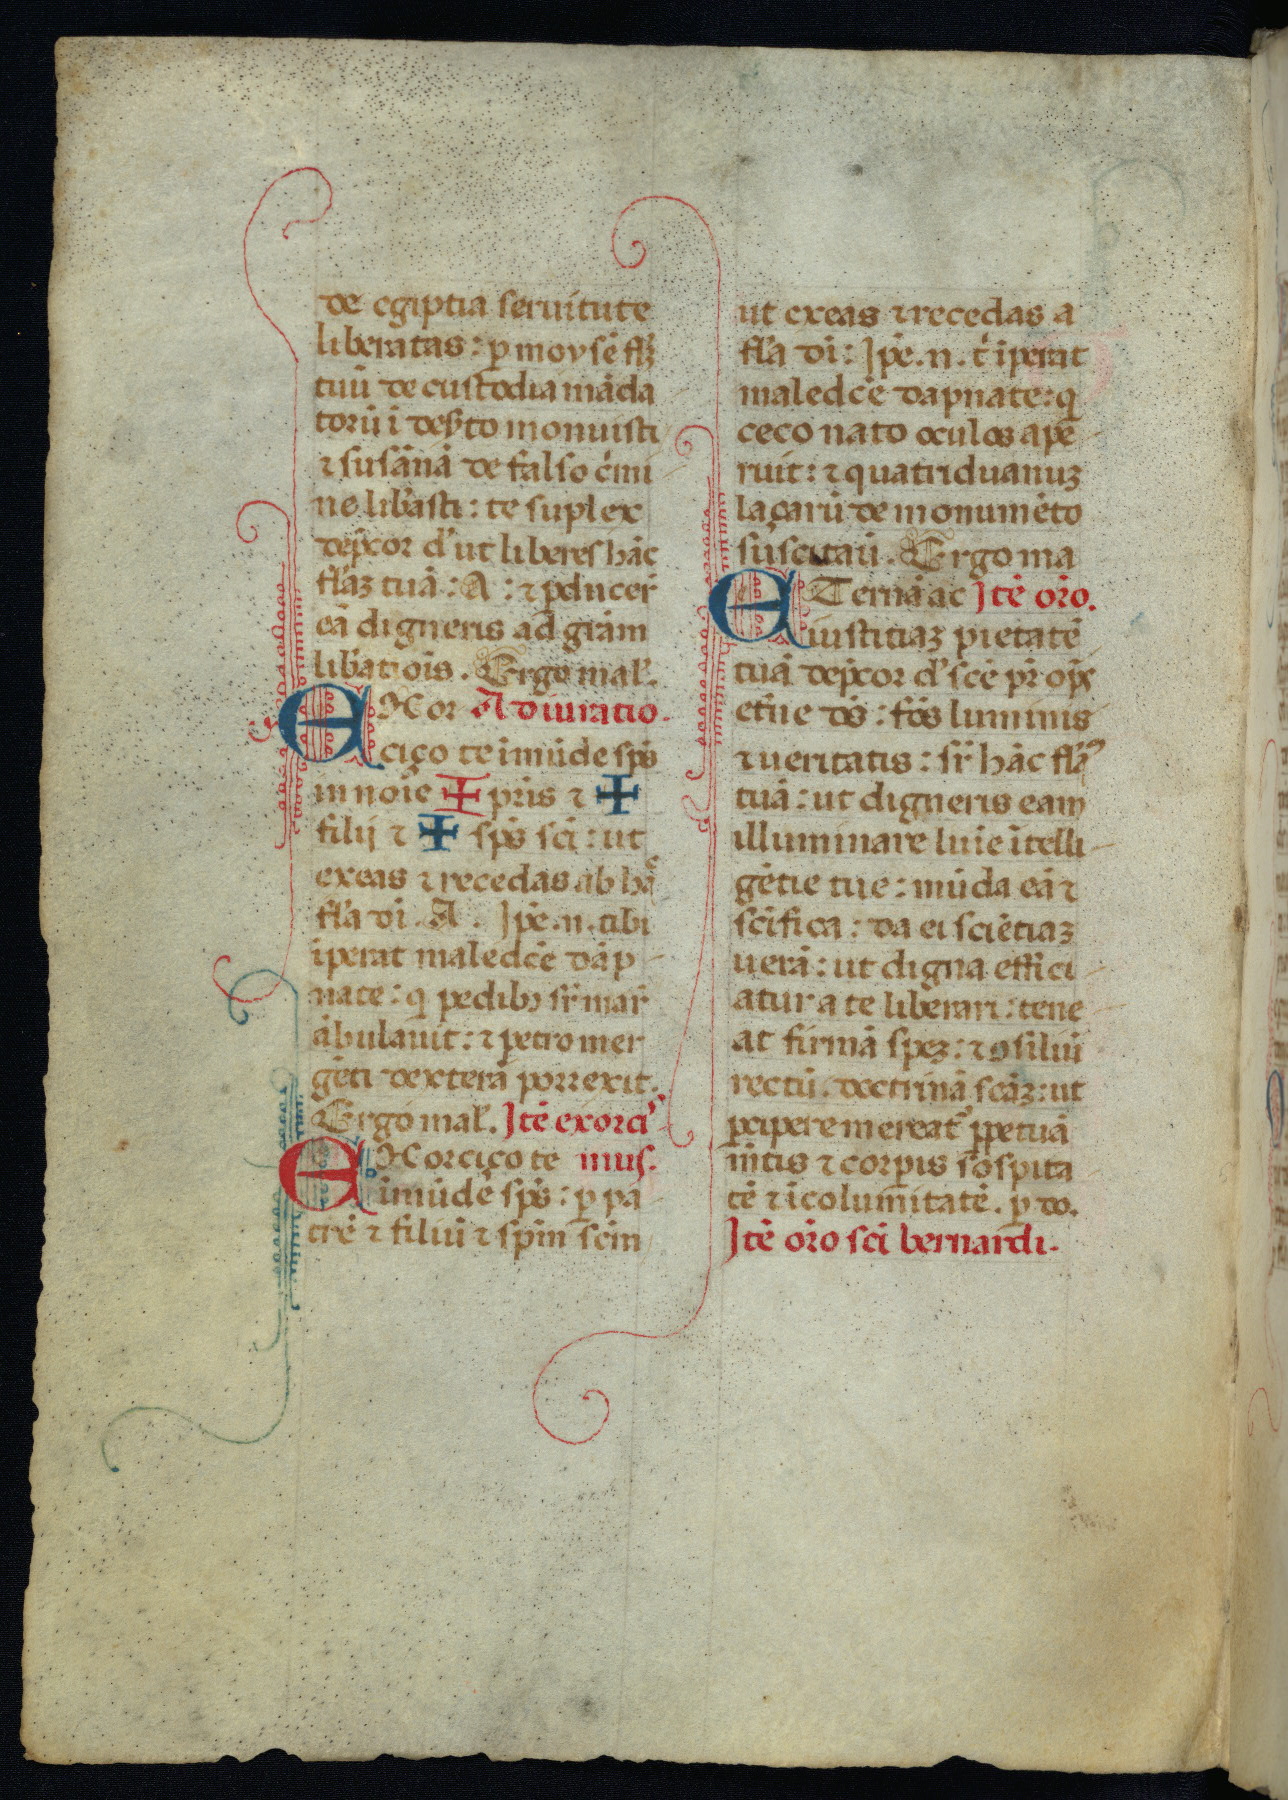 de egiptia seruitute
liberatas: ꝑ moysē fłȝ
tuū de custodia māda
torū ī deẜto monuisti
⁊ susānā de falso c̓mi
ne libasti: te suplex
dep̄cor d̓ ut liberes hāc
fłaȝ tuā: A: ⁊ ꝑducer̄
eā digneris ad grām
libatiōis. Ergo mal̓.
EXor Adiuratio.
ciço te īmūde sp̄s
in noīe ✠ pr̄is ⁊ ✠
filij ⁊ ✠ sp̄s sc̄i: ut
exeas ⁊ recedas ab hac
fła di. A. Ip̄e .n. tibi
īperat maledc̄e dāp
nate: q̄ pedibȝ sr̄ mar̄
ābulauit: ⁊ petro mer
gēti dexterā porrexit.
Ergo mal̓. Itē exorci
EXorciço te mus.
īmūdē sp̄s: ꝑ pa
trē ⁊ filiū ⁊ sp̄m sc̄m
ut exeas ⁊ recedas a
fła di: Ip̄e .n. t̓ īperat
maledc̄e dapnate: q̄
ceco nato oculos ape
ruit: ⁊ quatriduanuȝ
laçarū de monumēto
suscitaū. Ergo ma
ETernā ac Itē or̄o.
iustitiaȝ pietatē
tuā dep̄cor d̓ sc̄e pr̄ op̄s
et̄ne ds̄: fōs luminis
⁊ ueritatis: sr̄ hāc fłaȝ
tuā: ut digneris eam
illuminare luīe ītelli
gētie tue: mūda eā ⁊
sc̄ifica: da ei sciētiaȝ
uerā: ut digna effici
atur a te liberari: tene
at firmā speȝ: ⁊ ꝯsiliū
rectū. doctrinā scāȝ: ut
ꝑcipere mereat̓ ꝑpetuā
m̄tis ⁊ corꝑis sospita
tē ⁊ īcolumitatē. ꝑ do.
Itē or̄o sc̄i bernardi.